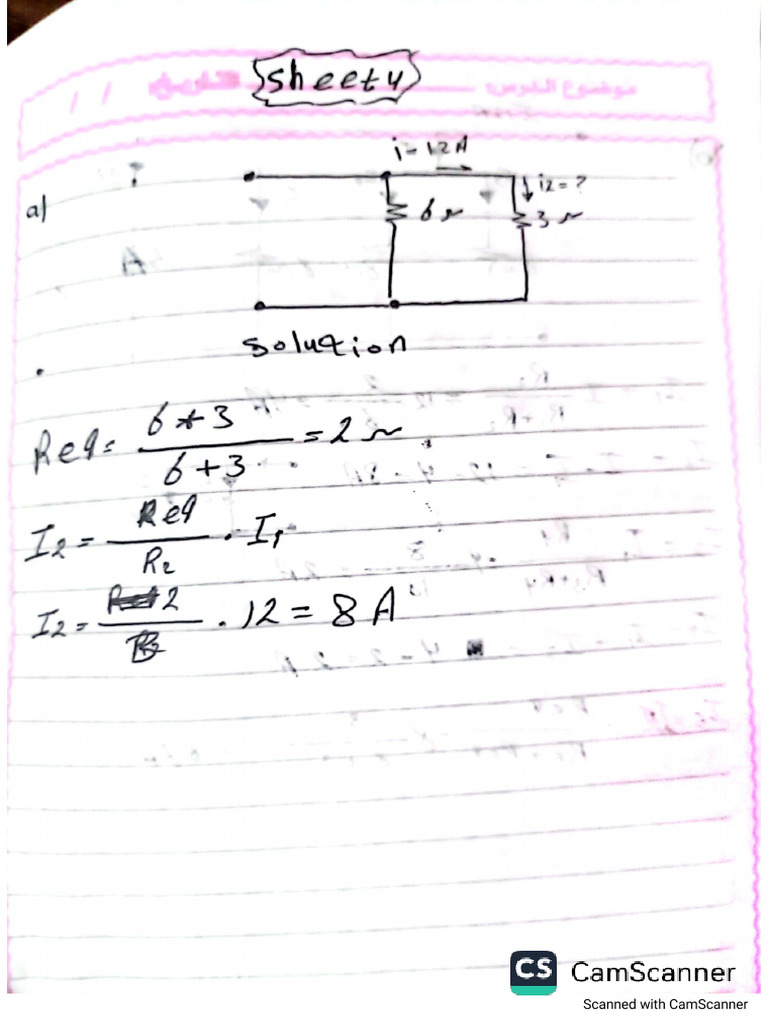 موضوع الدرس: التاريخ: / /
sheet 4
i = 12 A
a)
i2 = ?
6 Ω
3 Ω
solution
Req = 6 * 3 / 6 + 3 = 2 Ω
I2 = Req / R2 . I1
I2 = 2 / 3 . 12 = 8 A
CS CamScanner
Scanned with CamScanner